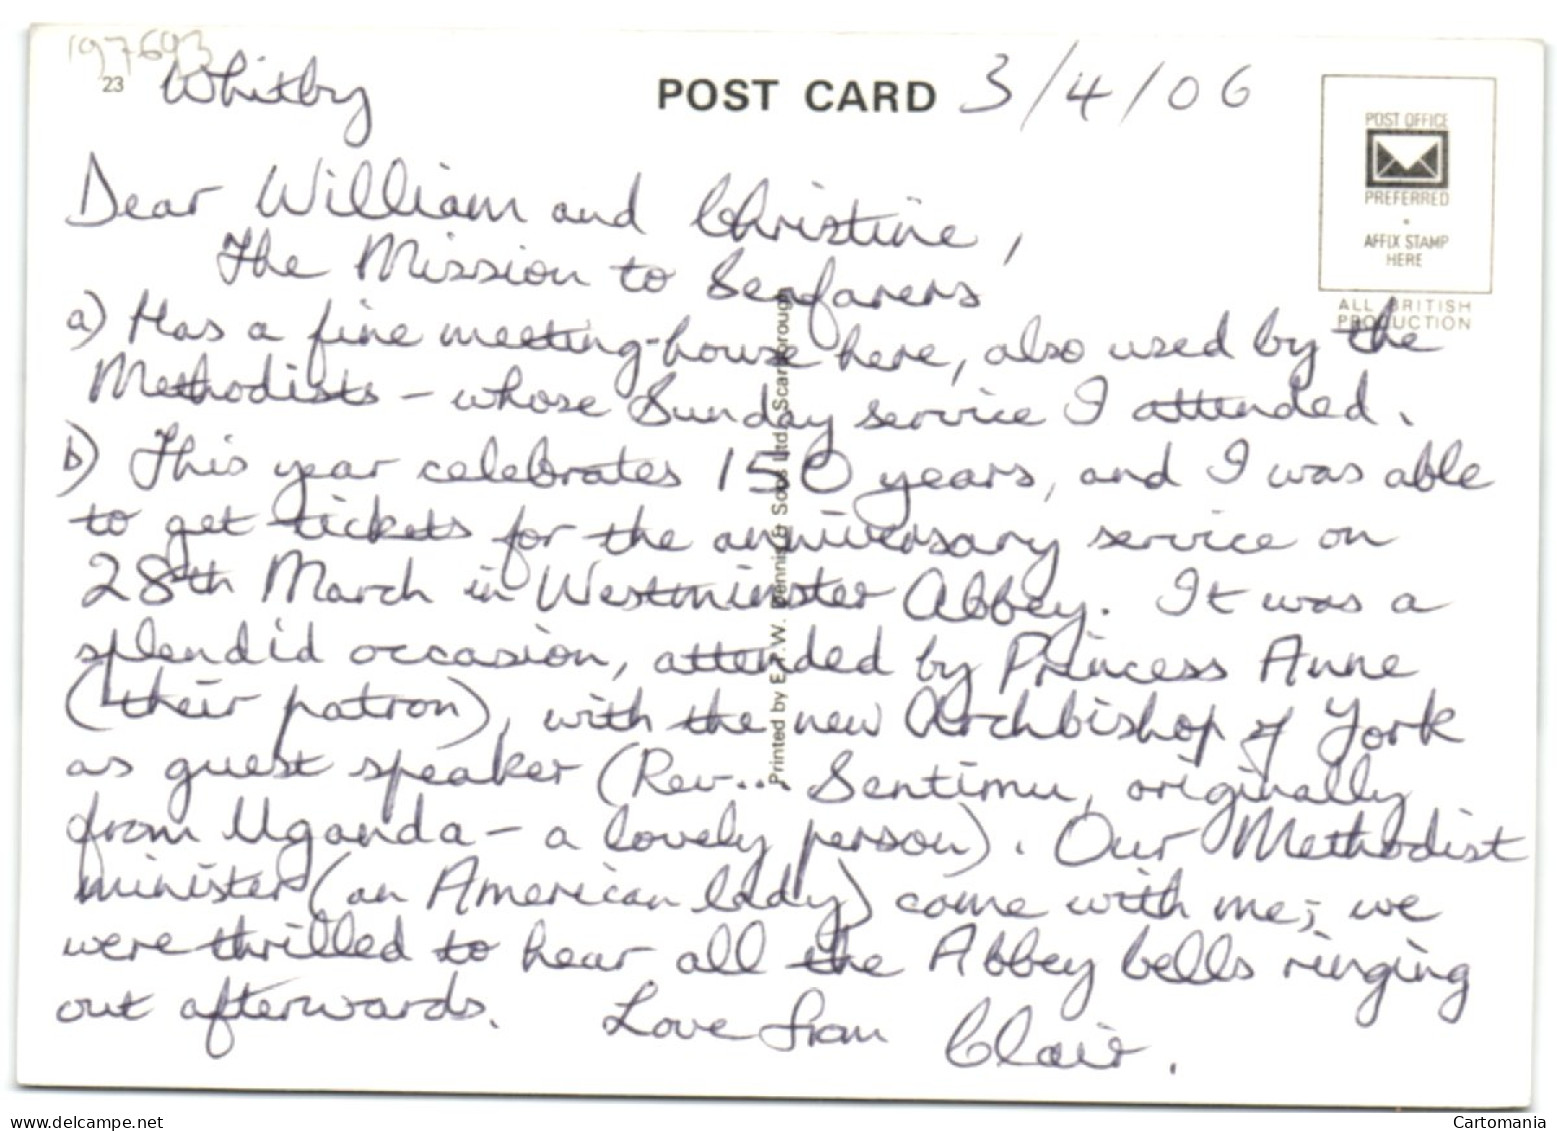 197693
23 Whitby POST CARD 3/4/06
POST OFFICE
PREFERRED
AFFIX STAMP
HERE
ALL BRITISH
PRODUCTION
Dear William and Christine,
The Mission to Seafarers
a) Has a fine meeting-house here, also used by the
Methodists – whose Sunday service I attended.
b) This year celebrates 150 years, and I was able
to get tickets for the anniversary service on
28th March in Westminster Abbey. It was a
splendid occasion, attended by Princess Anne
(their patron), with the new Archbishop of York
as guest speaker (Rev... Sentimu, originally
from Uganda – a lovely person). Our Methodist
minister (an American lady) came with me; we
were thrilled to hear all the Abbey bells ringing
out afterwards. Love from Clair.
Printed by E.T.W. Dennis & Sons Ltd., Scarborough
www.delcampe.net
Cartomania